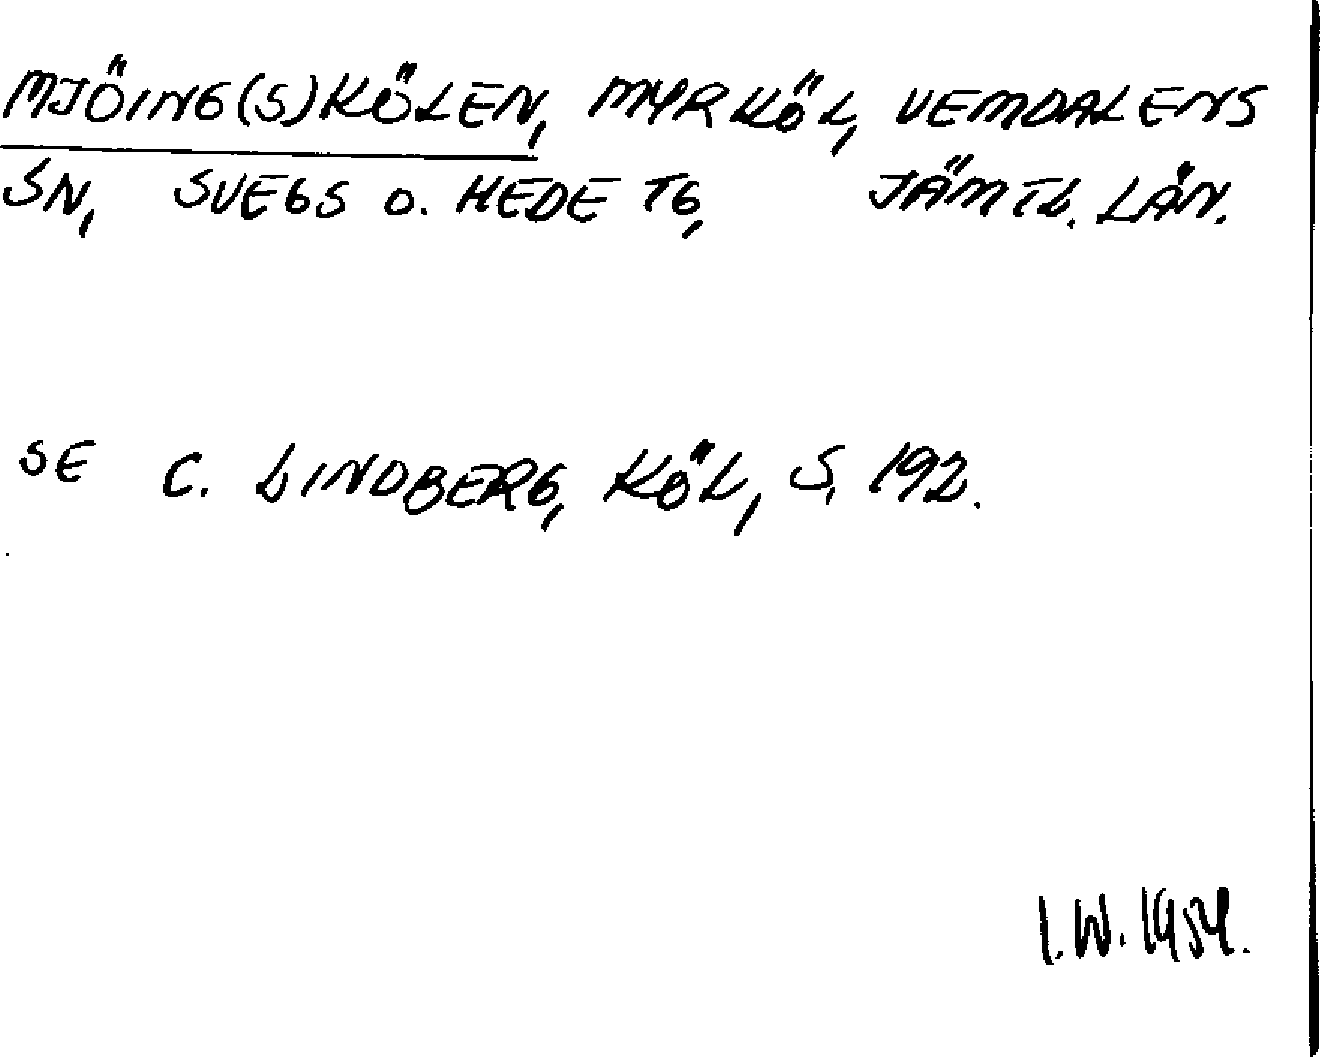 MJÖING(S)KÖLEN, MYRKÖL, VEMDALENS
SN, SVEGS O. HEDE TG, JÄMTL. LÄN.
SE C. LINDBERG, KÖL, S. 192.
I.W. 1954.